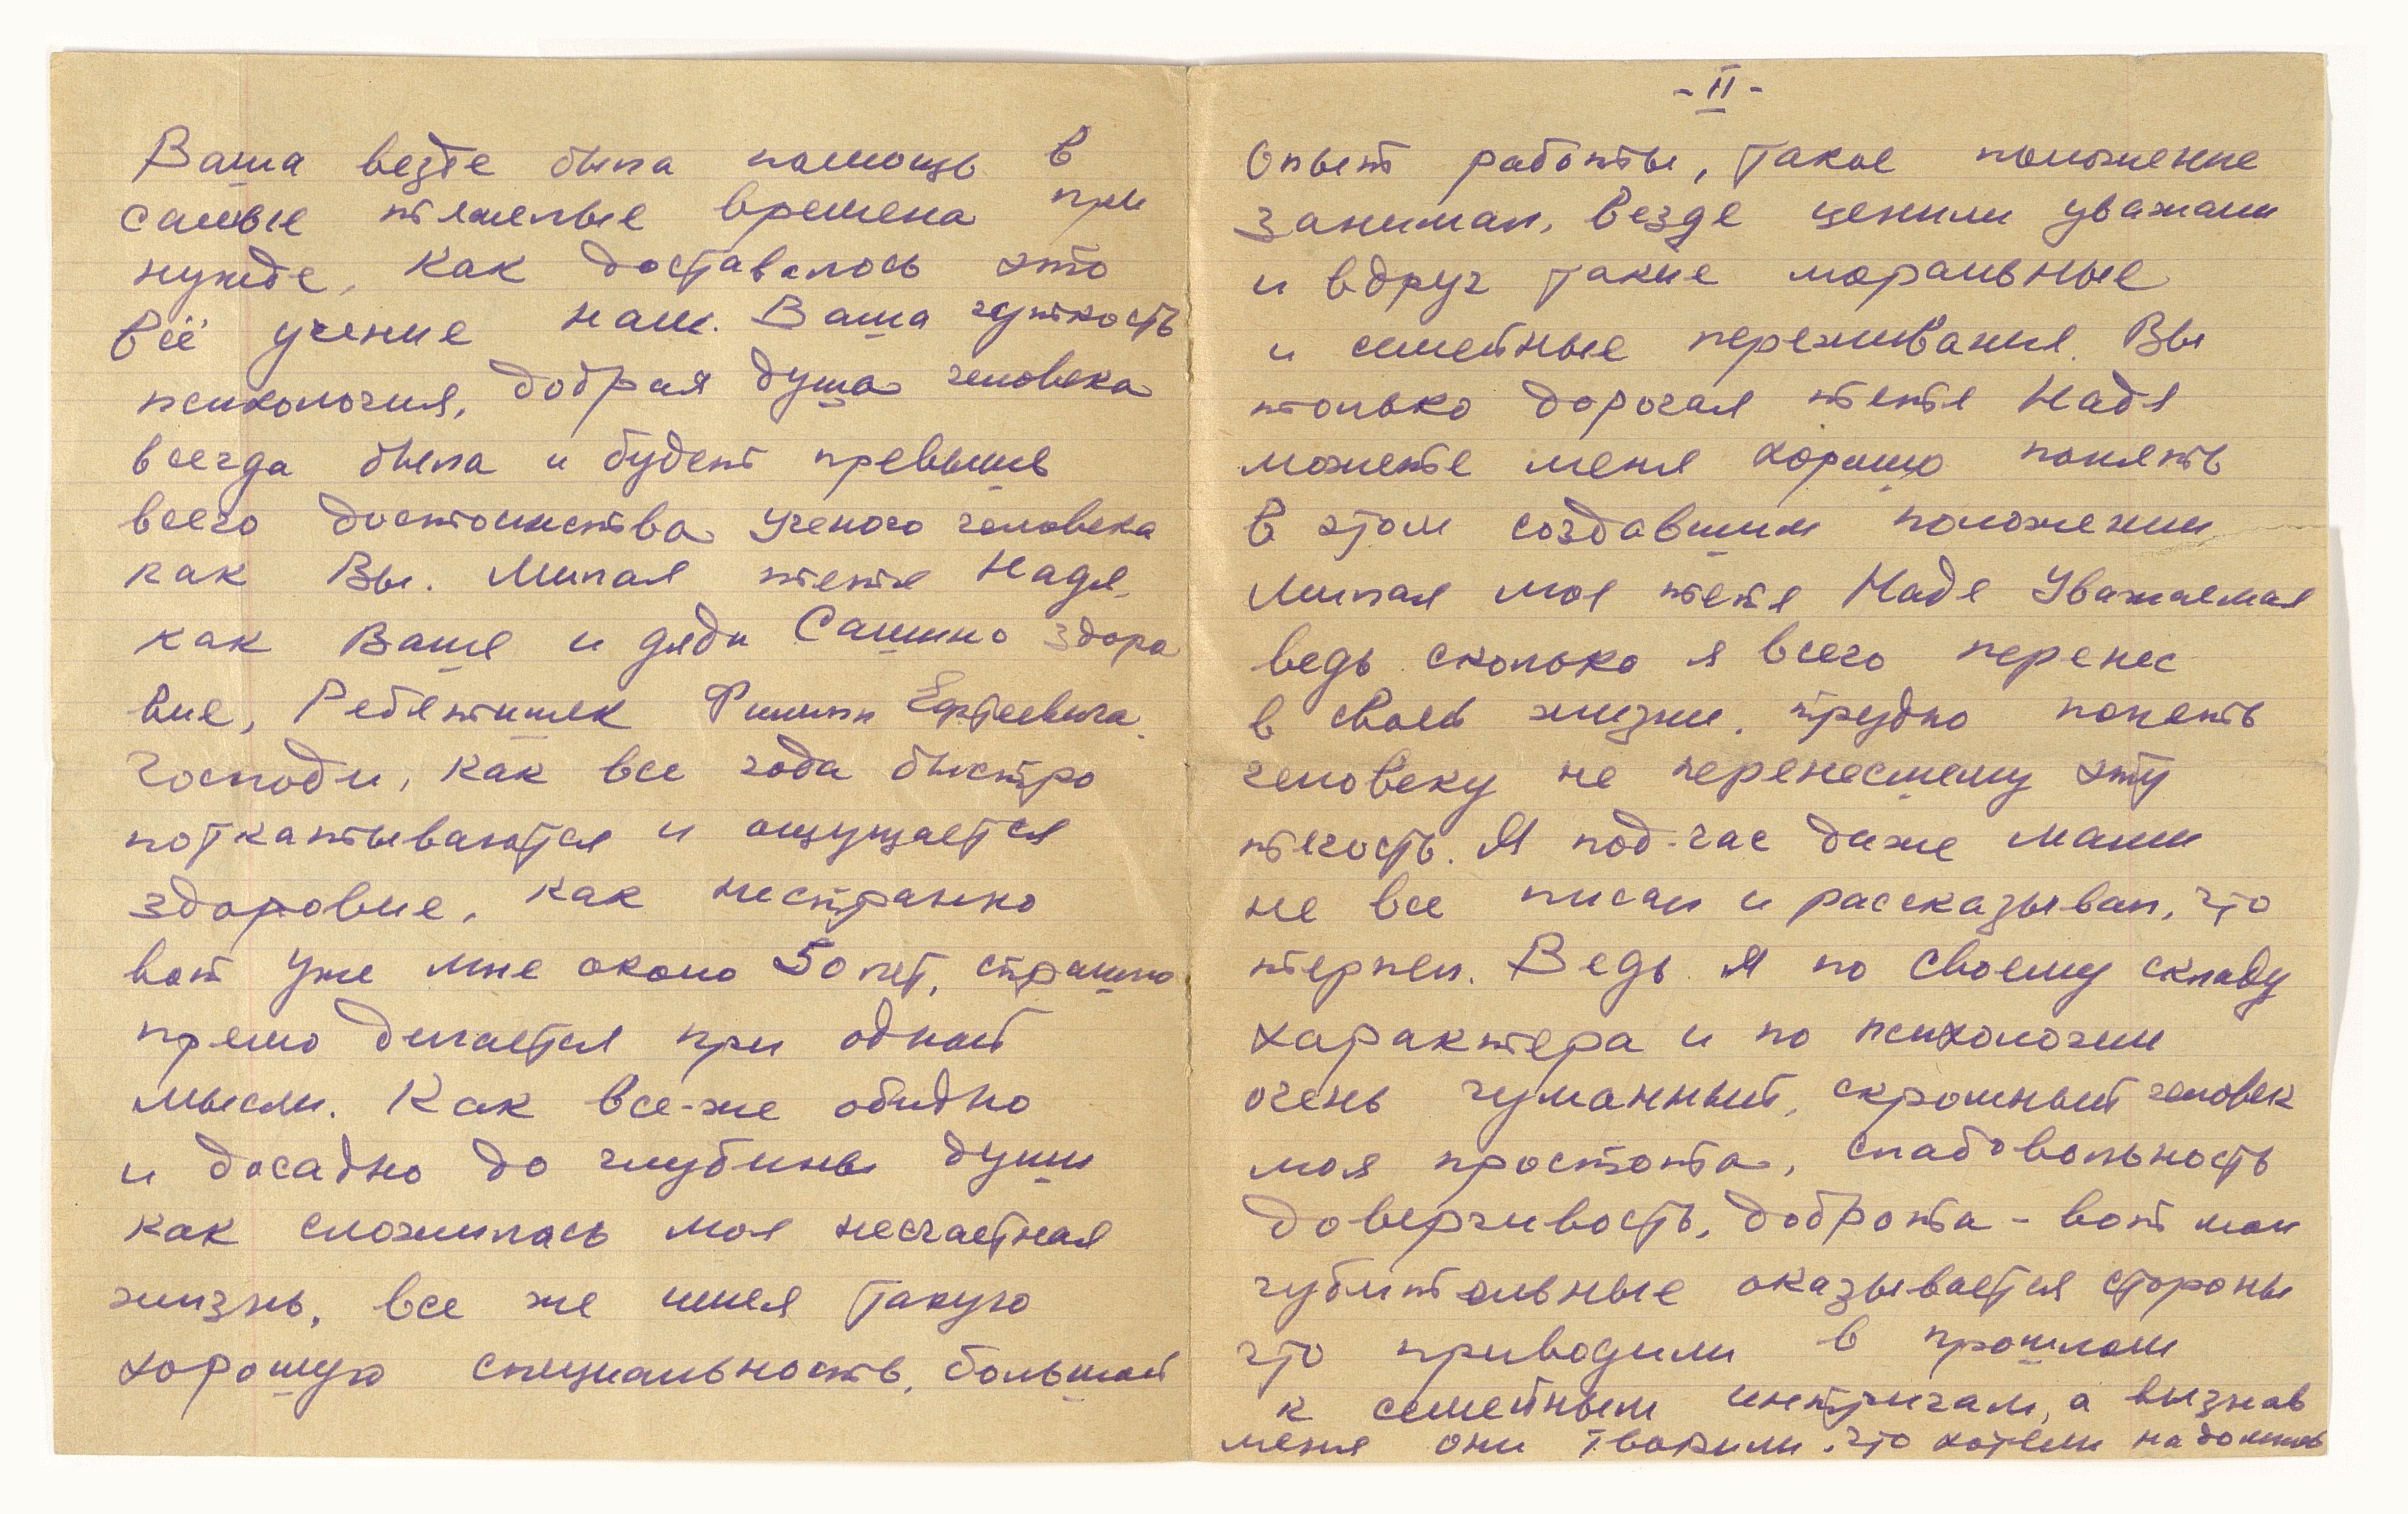 Ваша везде была помощь в
самые тяжелые времена при
нужде, как доставалось это
всё учение нам. Ваша чуткость
психология, добрая душа человека
всегда была и будет превыше
всего достоинства ученого человека
как Вы. Милая тетя Надя,
как Ваше и дяди Сашино здоро
вие, Ребятишек Филипп Ефтеевича.
Господи, как все года быстро
поткатываются и ощущается
здоровие, как нестранно
вот уже мне около 50 лет, страшно
прямо делается при одной
мысли. Как все-же обидно
и досадно до глубины души
как сложилась моя несчастная
жизнь, все же имея такую
хорошую специальность, большой
- II -
Опыт работы, такое положение
занимал, везде ценили уважали
и вдруг такие моральные
и семейные переживания. Вы
только дорогая тетя Надя
можете меня хорошо понять
в этом создавшим положении
Милая моя тетя Надя Уважаемая
ведь сколько я всего перенес
в своей жизни, трудно понять
человеку не перенесшему эту
тягость. Я под-час даже маме
не все писал и рассказывал, что
терпел. Ведь я по своему складу
характера и по психологии
очень гуманный, скромный человек
моя простота, слабовольность
доверчивость, доброта - вот мои
губительные оказывается стороны
что приводили в прошлом
к семейным интригам, а вызнав
меня они творили что хотели